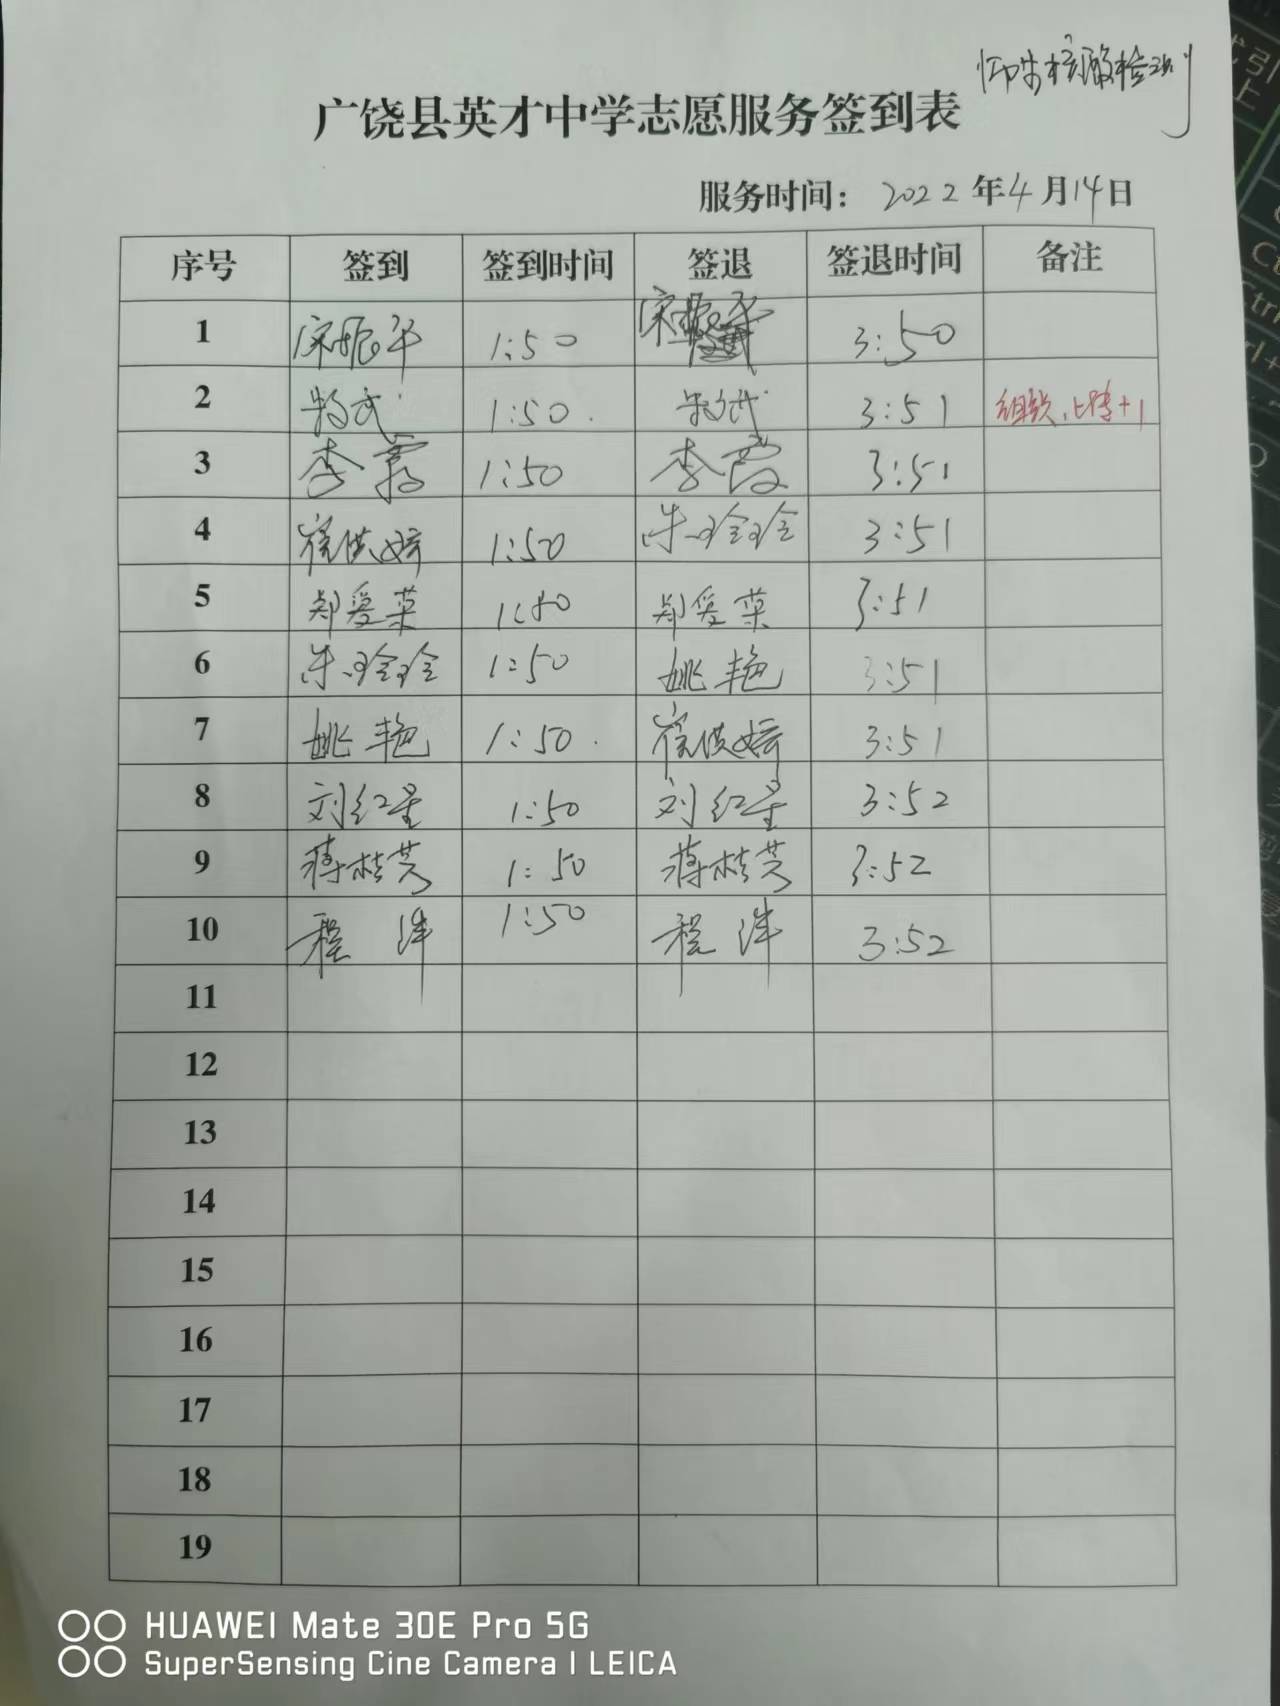 师生核酸检测
广饶县英才中学志愿服务签到表
服务时间： 2022年4月14日
序号 签到 签到时间 签退 签退时间 备注
1 宋振华 1:50 宋振华 3:50
2 1:50. 3:51 组织,上传+1
3 李霞 1:50 李霞 3:51
4 崔洪婷 1:50 朱玲玲 3:51
5 郑爱菜 1:50 郑爱菜 3:51
6 朱玲玲 1:50 姚艳 3:51
7 姚艳 1:50. 崔洪婷 3:51
8 刘红星 1:50 刘红星 3:52
9 蒋桂芳 1:50 蒋桂芳 3:52
10 程洋 1:50 程洋 3:52
11
12
13
14
15
16
17
18
19
HUAWEI Mate 30E Pro 5G
SuperSensing Cine Camera | LEICA